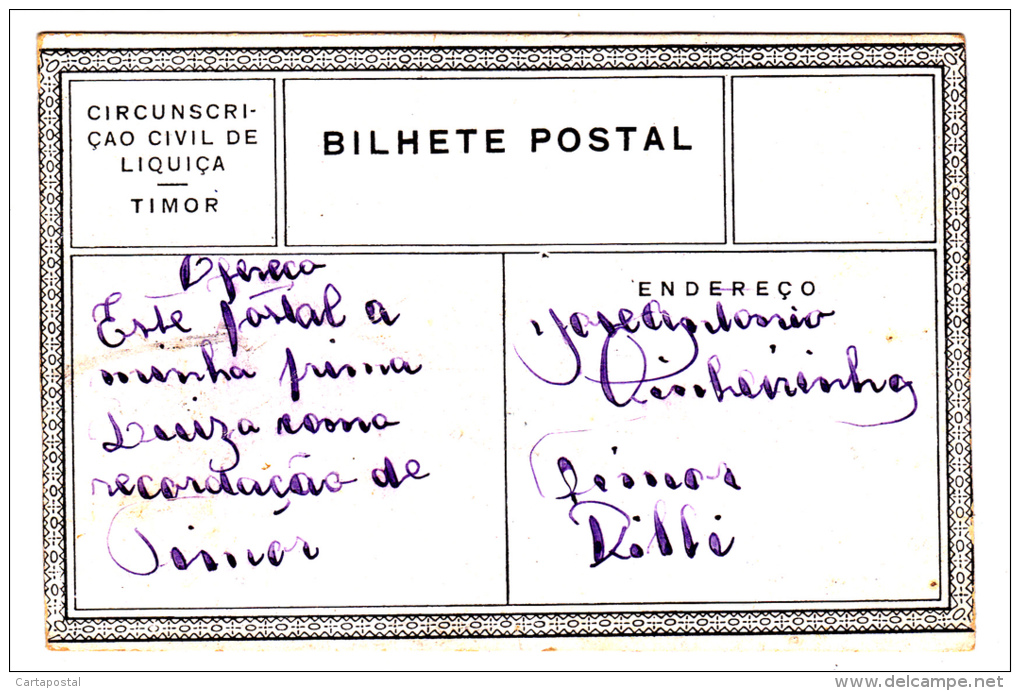 CIRCUNSCRI-
ÇAO CIVIL DE
LIQUIÇA
TIMOR
BILHETE POSTAL
Ofereço
Este postal a
minha prima
Luiza como
recordação de
Timor
ENDEREÇO
José Antonio
Pinheirinho
Timor
Dilli
Cartapostal
www.delcampe.net